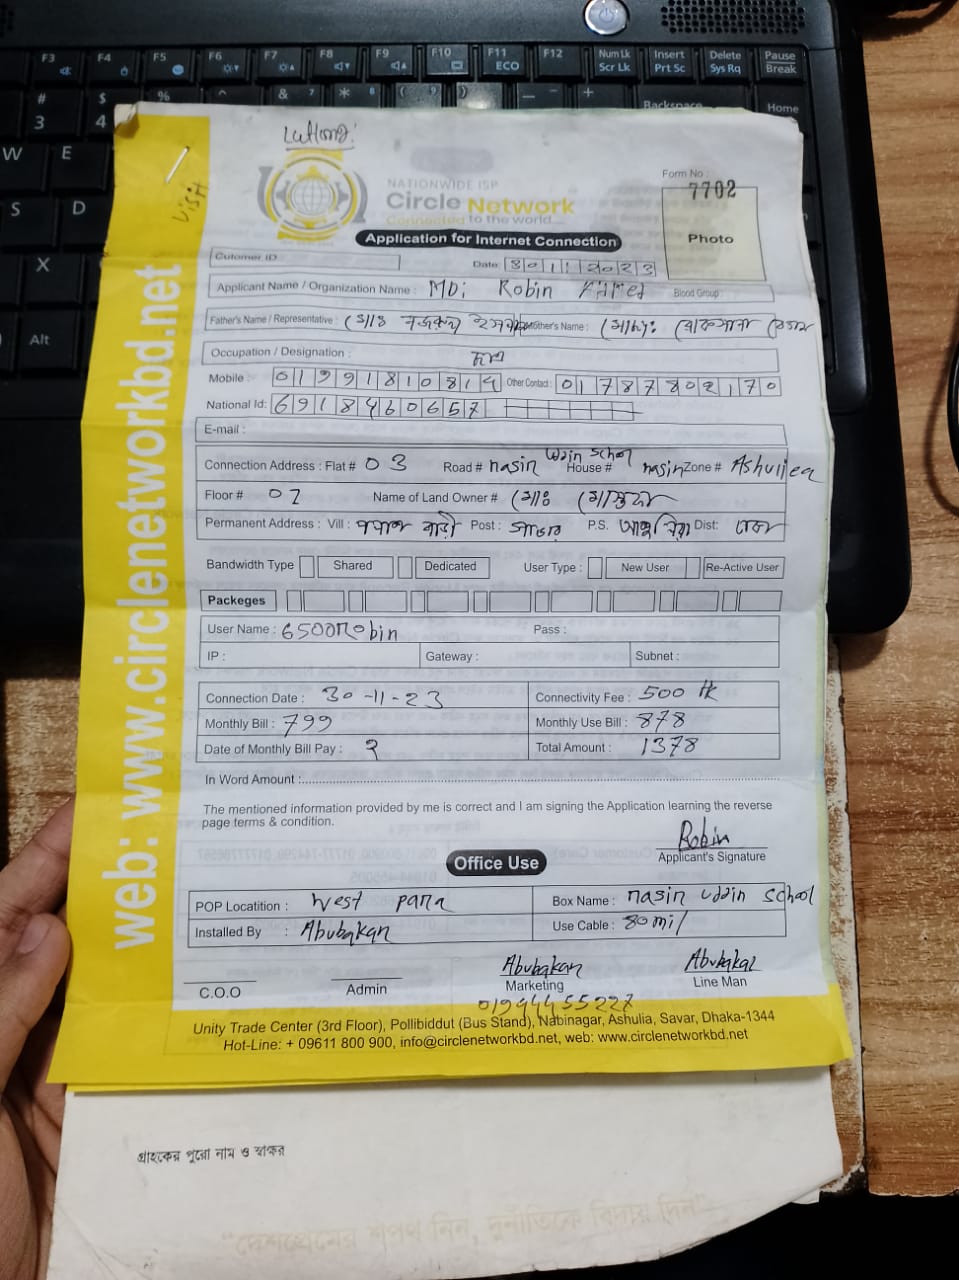 F3 F4 F5 F6 F7 F8 F9 F10 F11 F12 Num Lk Insert Delete Pause
ECO Scr Lk Prt Sc Sys Rq Break
# $ % ^ & 7 * 8 ( 9 ) — +
3 4 Backspace Home
W E
S D
X
Alt
Visit
NATIONWIDE ISP
Circle Network
Connected to the world...
Form No :
7702
Photo
Application for Internet Connection
Cutomer ID
Date 30 11 2023
Applicant Name / Organization Name : MD: Robin Blood Group :
Father's Name / Representative : মোঃ নজরুল Mother's Name : মোছাঃ রোকসানা বেগম
Occupation / Designation :
Mobile : 01991810814 Other Contact : 01787802170
National Id: 6918460657
E-mail :
Connection Address : Flat # 03 Road # nasin uddin School House # nasin Zone # Ashuliea
Floor # 02 Name of Land Owner # মোঃ
Permanent Address : Vill : পলাশ বাড়ী Post : সাভার P.S. আশুলিয়া Dist: ঢাকা
Bandwidth Type Shared Dedicated User Type : New User Re-Active User
Packeges
User Name : 6500Robin Pass :
IP : Gateway : Subnet :
Connection Date : 30-11-23 Connectivity Fee : 500 tk
Monthly Bill : 799 Monthly Use Bill : 878
Date of Monthly Bill Pay : 2 Total Amount : 1378
In Word Amount :
The mentioned information provided by me is correct and I am signing the Application learning the reverse
page terms & condition.
Robin
Applicant's Signature
Office Use
POP Locatition : West para Box Name : nasin uddin School
Installed By : Abubakar Use Cable : 80 mil
Abubakar Abubakar
C.O.O Admin Marketing Line Man
01944455227
Unity Trade Center (3rd Floor), Pollibiddut (Bus Stand), Nabinagar, Ashulia, Savar, Dhaka-1344
Hot-Line: + 09611 800 900, info@circlenetworkbd.net, web: www.circlenetworkbd.net
web: www.circlenetworkbd.net
গ্রাহকের পুরো নাম ও স্বাক্ষর
"দেশপ্রেমের শপথ নিন, দুর্নীতিকে বিদায় দিন"